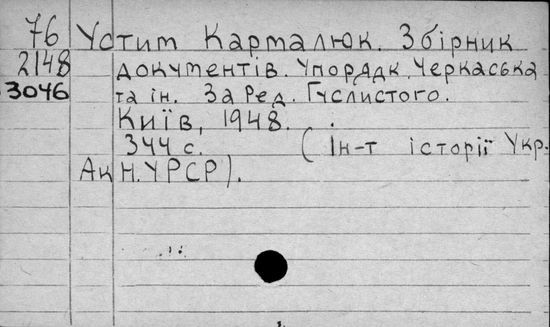 76 Устим Кармалюк. Збірник
2148 документів. Упорядк. Черкаська
3046 та ін. За Ред. Гуслистого.
Київ, 1948.
344 с. (Ін-т історії Укр.
Ак Н. УРСР).